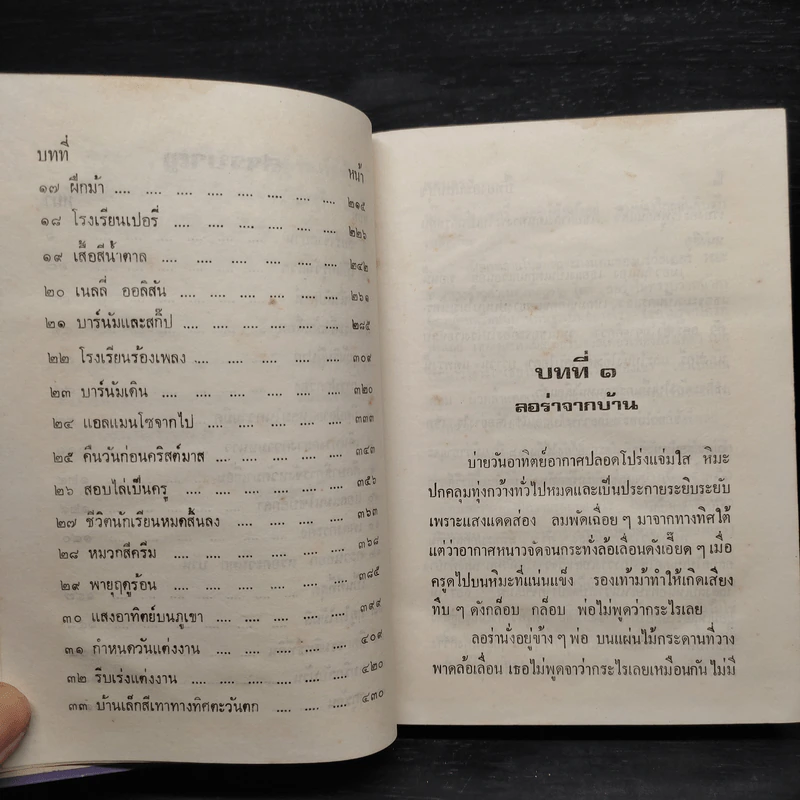 บทที่
หน้า
๑๗ ฝึกม้า .... .... .... .... .... .... .... .... ๒๑๕
๑๘ โรงเรียนเปอรี่ .... .... .... .... .... .... ๒๒๖
๑๙ เสื้อสีน้ำตาล .... .... .... .... .... ๒๔๒
๒๐ เนลลี่ ออลิสัน .... .... .... .... .... ๒๖๑
๒๑ บาร์นัมและสกิ๊ป .... .... .... .... .... ๒๘๕
๒๒ โรงเรียนร้องเพลง .... .... .... .... .... ๓๐๙
๒๓ บาร์นัมเดิน .... .... .... .... .... ๓๒๐
๒๔ แอลแมนโซจากไป .... .... .... .... ๓๓๓
๒๕ คืนวันก่อนคริสต์มาส .... .... .... .... ๓๔๓
๒๖ สอบไล่เป็นครู .... .... .... .... .... ๓๕๖
๒๗ ชีวิตนักเรียนหมดสิ้นลง .... .... .... .... ๓๖๓
๒๘ หมวกสีครีม .... .... .... .... .... ๓๖๘
๒๙ พายุฤดูร้อน .... .... .... .... .... ๓๘๕
๓๐ แสงอาทิตย์บนภูเขา .... .... .... .... ๓๙๙
๓๑ กำหนดวันแต่งงาน .... .... .... .... ๔๐๙
๓๒ รีบเร่งแต่งงาน .... .... .... .... .... ๔๒๐
๓๓ บ้านเล็กสีเทาทางทิศตะวันตก .... .... .... ๔๓๐
บทที่ ๑
ลอร่าจากบ้าน
บ่ายวันอาทิตย์อากาศปลอดโปร่งแจ่มใส หิมะ
ปกคลุมทุ่งกว้างทั่วไปหมดและเป็นประกายระยิบระยับ
เพราะแสงแดดส่อง ลมพัดเฉื่อย ๆ มาจากทางทิศใต้
แต่ว่าอากาศหนาวจัดจนกระทั่งล้อเลื่อนดังเอี๊ยด ๆ เมื่อ
ครูดไปบนหิมะที่แน่นแข็ง รองเท้าม้าทำให้เกิดเสียง
ทึบ ๆ ดังกล็อบ กล็อบ พ่อไม่พูดว่ากระไรเลย
ลอร่านั่งอยู่ข้าง ๆ พ่อ บนแผ่นไม้กระดานที่วาง
พาดล้อเลื่อน เธอไม่พูดจาว่ากระไรเลยเหมือนกัน ไม่มี